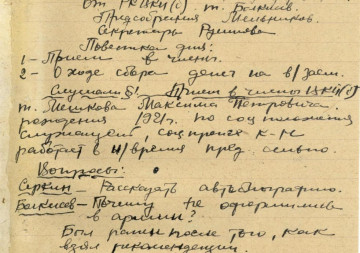 От РККП(б) т. Беккиев.
Предсобрания Мельников.
Секретарь
Повестка дня:
1 - Прием в члены.
2 - О ходе сбора денег на в/заем.
Слушали §1. Прием в члены ВКП(б)
т. Мешкова Максима Петровича.
рождения 1921 г. по соц положения
служащий, соц происх к-н
работает в н/время пред. сельпо.
Вопросы:
Серкин - Рассказать автобиографию.
Беккиев - Почему не оформились
в армии?
Был ранен после того, как
взял рекомендации.